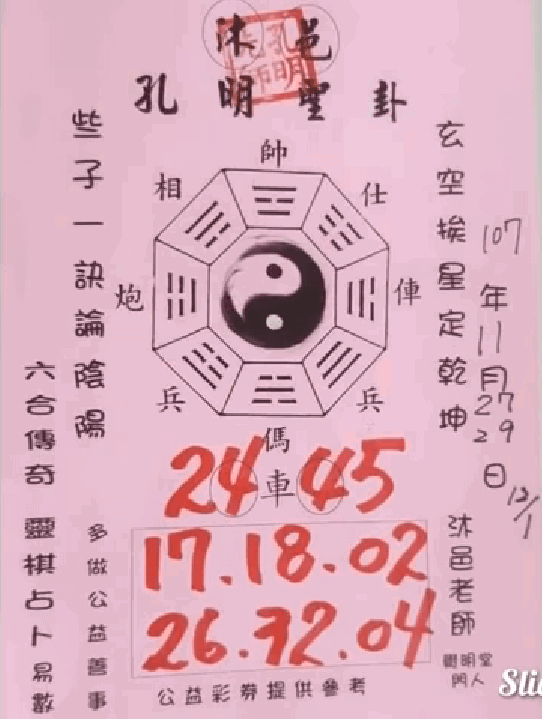 沐邑
孔明聖卦
孔明
玄空挨星定乾坤
些子一訣論陰陽
帥
相
仕
炮
俥
兵
兵
傌
車
107年11月27 29日 12/1
24 45
17.18.02
26.32.04
六合傳奇 靈棋占卜易數
多做公益善事
沐邑老師
門人
公益彩券提供參考
Slid